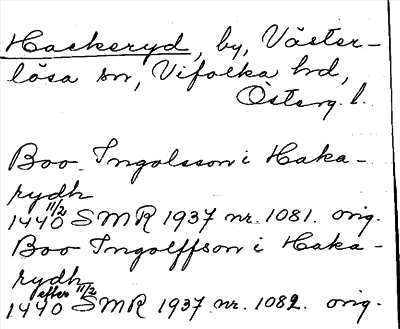 Hackeryd, by, Väster-
lösa sn, Vifolka hd,
Österg. l.
Boo Ingolsson i Haka-
rydh
1440 11/2 SMR 1937 nr. 1081. orig.
Boo Ingolffson i Haka-
rydh
1440 efter 11/2 SMR 1937 nr. 1082. orig.